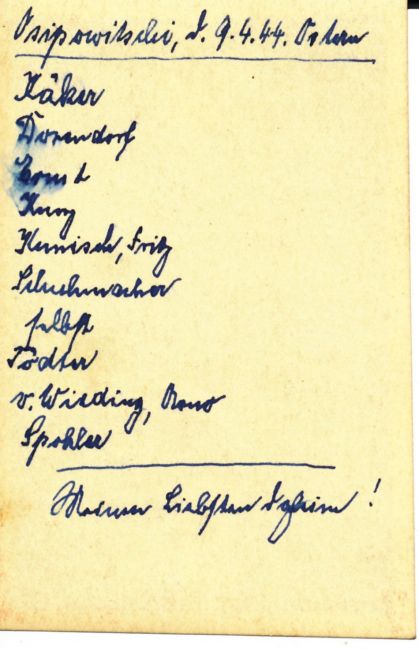 Osipowitschi, d. 9.4.44. Ostern
Käker
Dorendorf
Ernst
Kunz
Kunisch, Fritz
Schuhmacher
selbst
Tödter
v. Wieding, Arno
Spohler
Meiner Liebsten